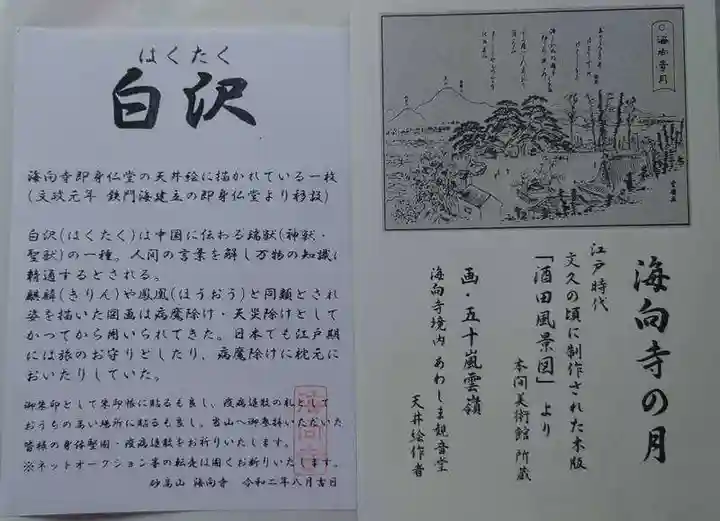 はくたく
白沢
海向寺即身仏堂の天井絵に描かれている一枚
(文政元年 鉄門海建立の即身仏堂より移設)
白沢(はくたく)は中国に伝わる瑞獣(神獣・
聖獣)の一種。人間の言葉を解し万物の知識に
精通するとされる。
麒麟(きりん)や鳳凰(ほうおう)と同類とされ
姿を描いた図画は病魔除け・天災除けとして
かつてから用いられてきた。日本でも江戸期
には旅のお守りとしたり、病魔除けに枕元に
おいたりしていた。
御朱印として朱印帳に貼るも良し、疫病退散の札として
おうちの高い場所に貼るも良し。当山へ御参拝いただいた
皆様の身体堅固・疫病退散をお祈りいたします。
※ネットオークション等の転売は固くお断りいたします。
砂高山 海向寺 令和二年八月吉日
海向寺月
海向寺の月
江戸時代
文久の頃に制作された木版
「酒田風景図」より
本間美術館 所蔵
画・五十嵐雲嶺
海向寺境内 あわしま観音堂
天井絵作者